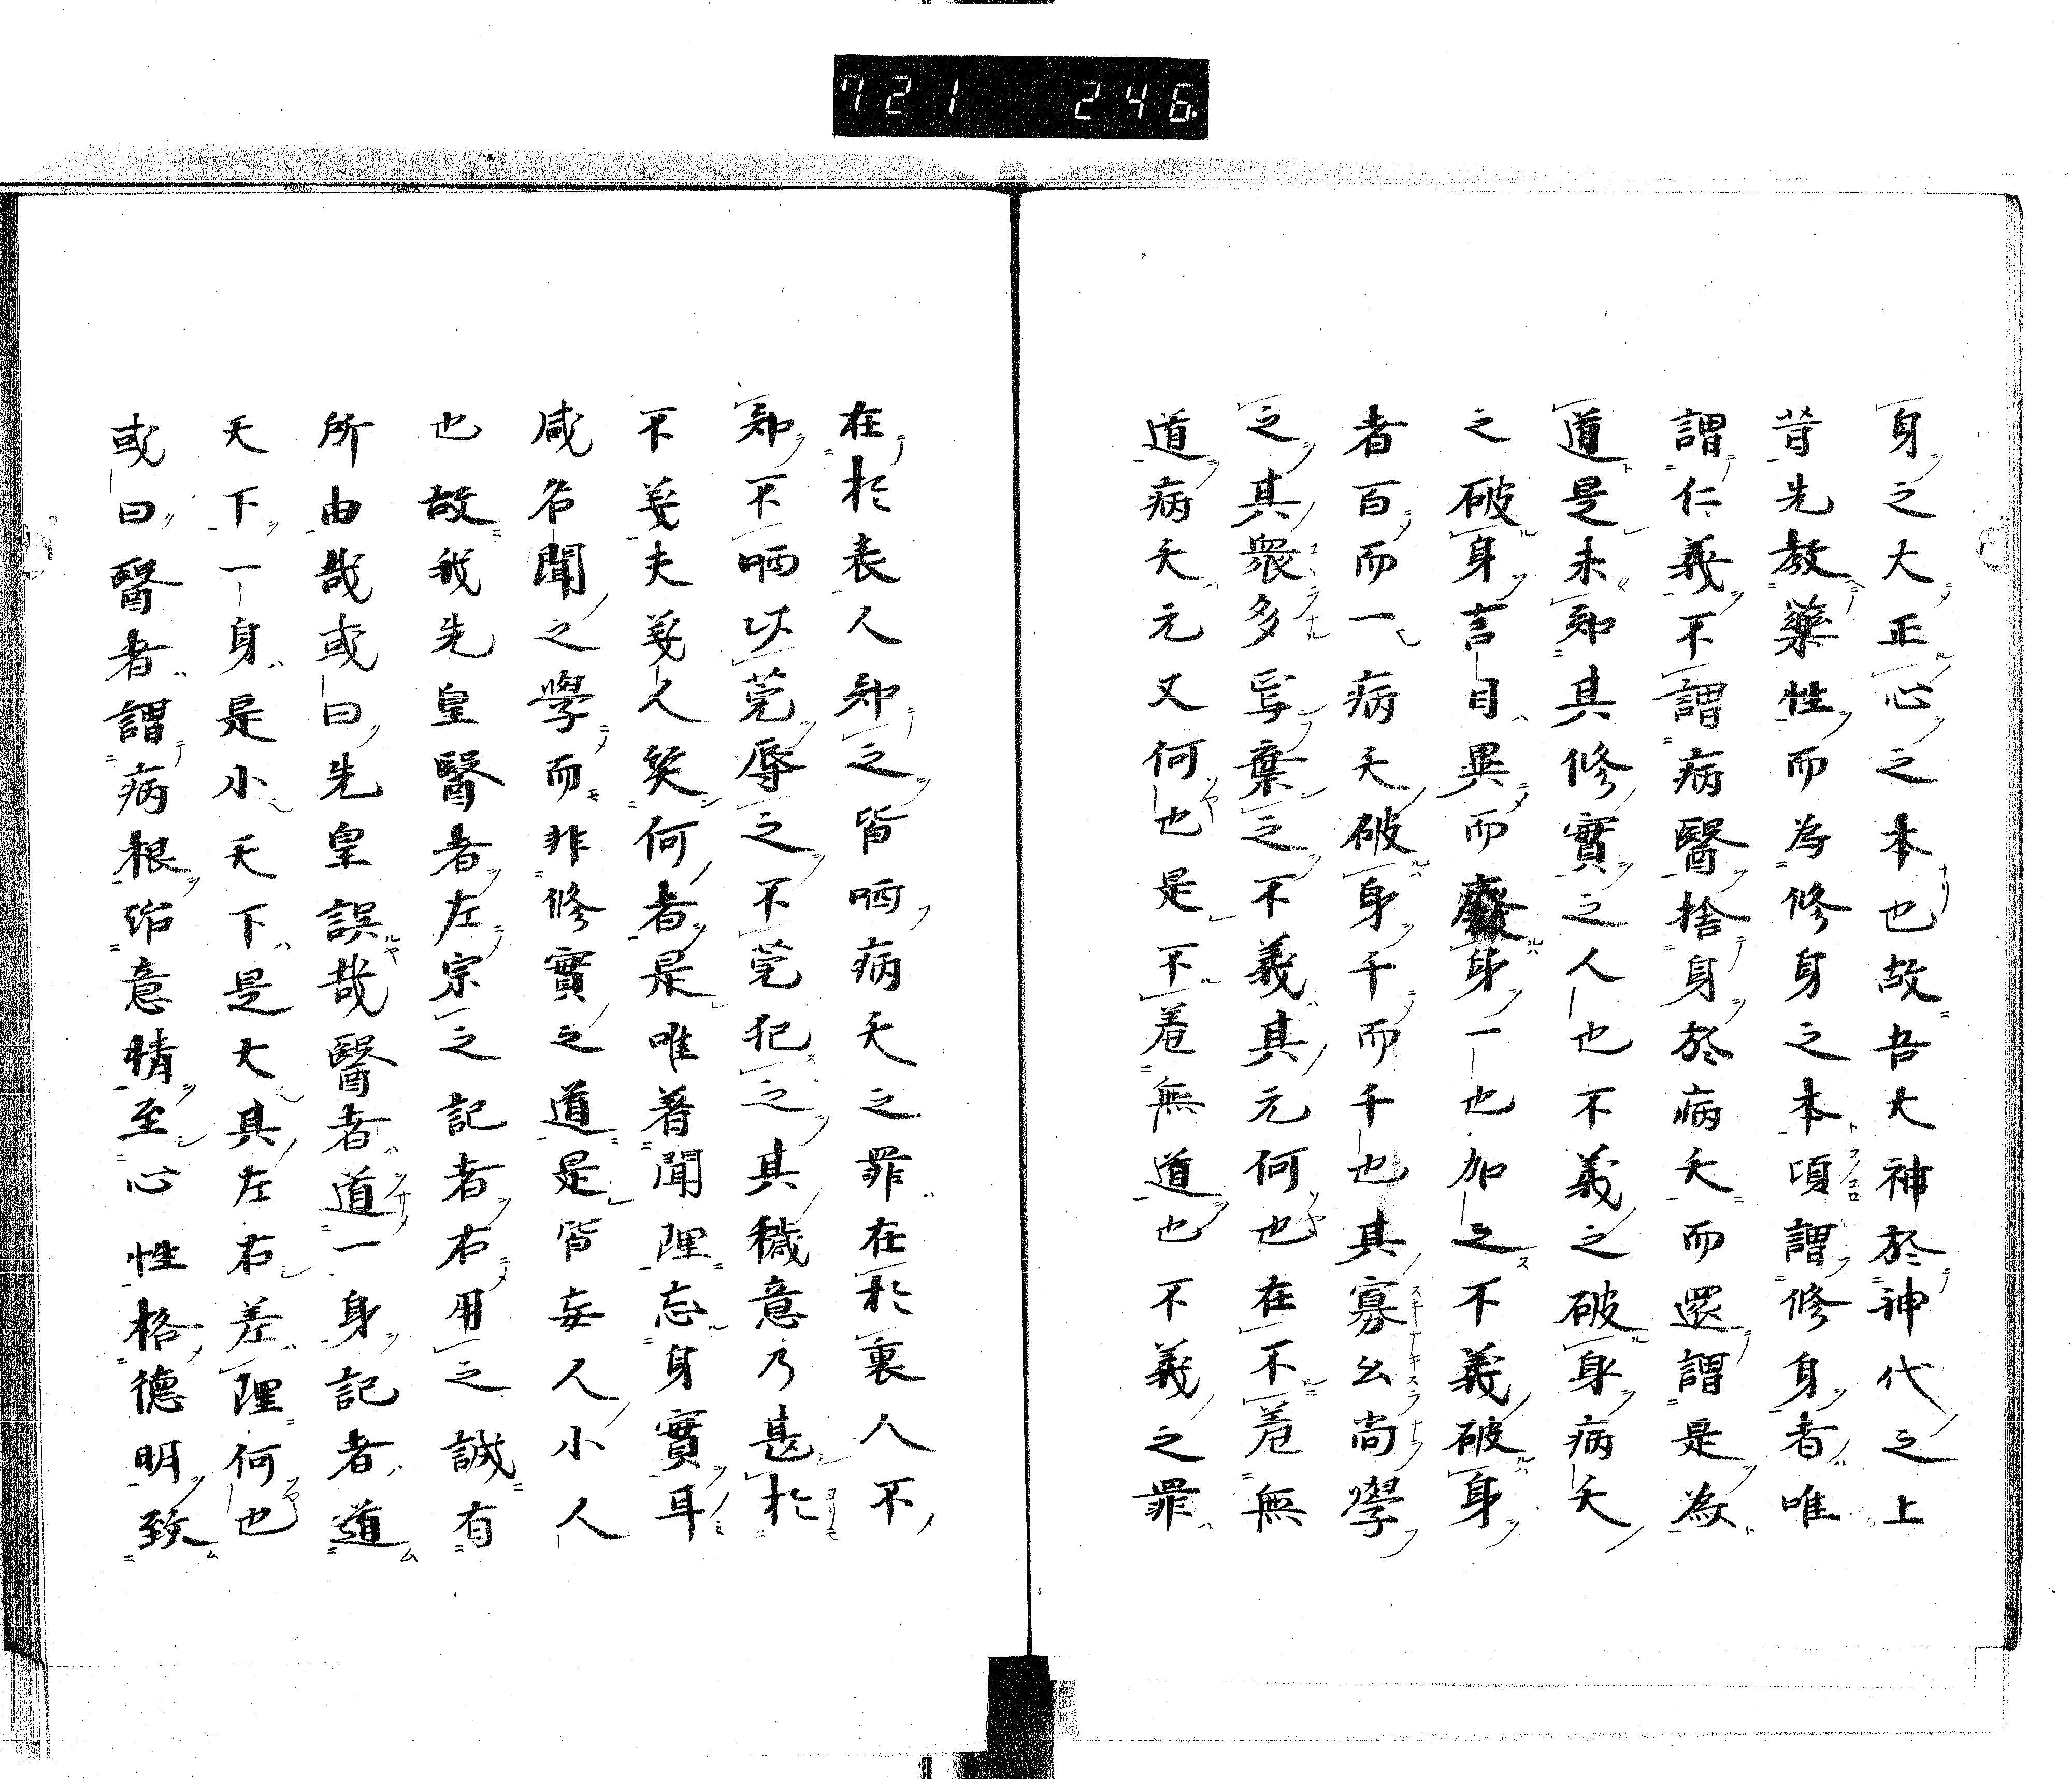 721 246
身之大正心之本也故吾大神於神代之上
昔先教藥性而為修身之本頃謂修身者唯
謂仁義不謂病醫捨身於病夭而還謂是為
道是未知其修實之人也不義之破身病夭
之破身言目異而癈身一也加之不義破身
者百而一病夭破身千而千也其寡幺尚學
之其衆多棄之不義其元何也在不無
道病夭元又何也是不無道也不義之罪
在於表人知之皆哂病夭之罪在於裏人不
知不哂以辱之不犯之其穢意乃甚於
不義夫義人笑何者是唯著聞理忘身實耳
咸名聞之學而非修實之道是皆妄人小人
也故我先皇醫者左宗之記者右用之誠有
所由哉或曰先皇誤哉醫者道一身記者道
天下一身是小天下是大其左右差理何也
或曰醫者謂病根治意情至心性格德明致